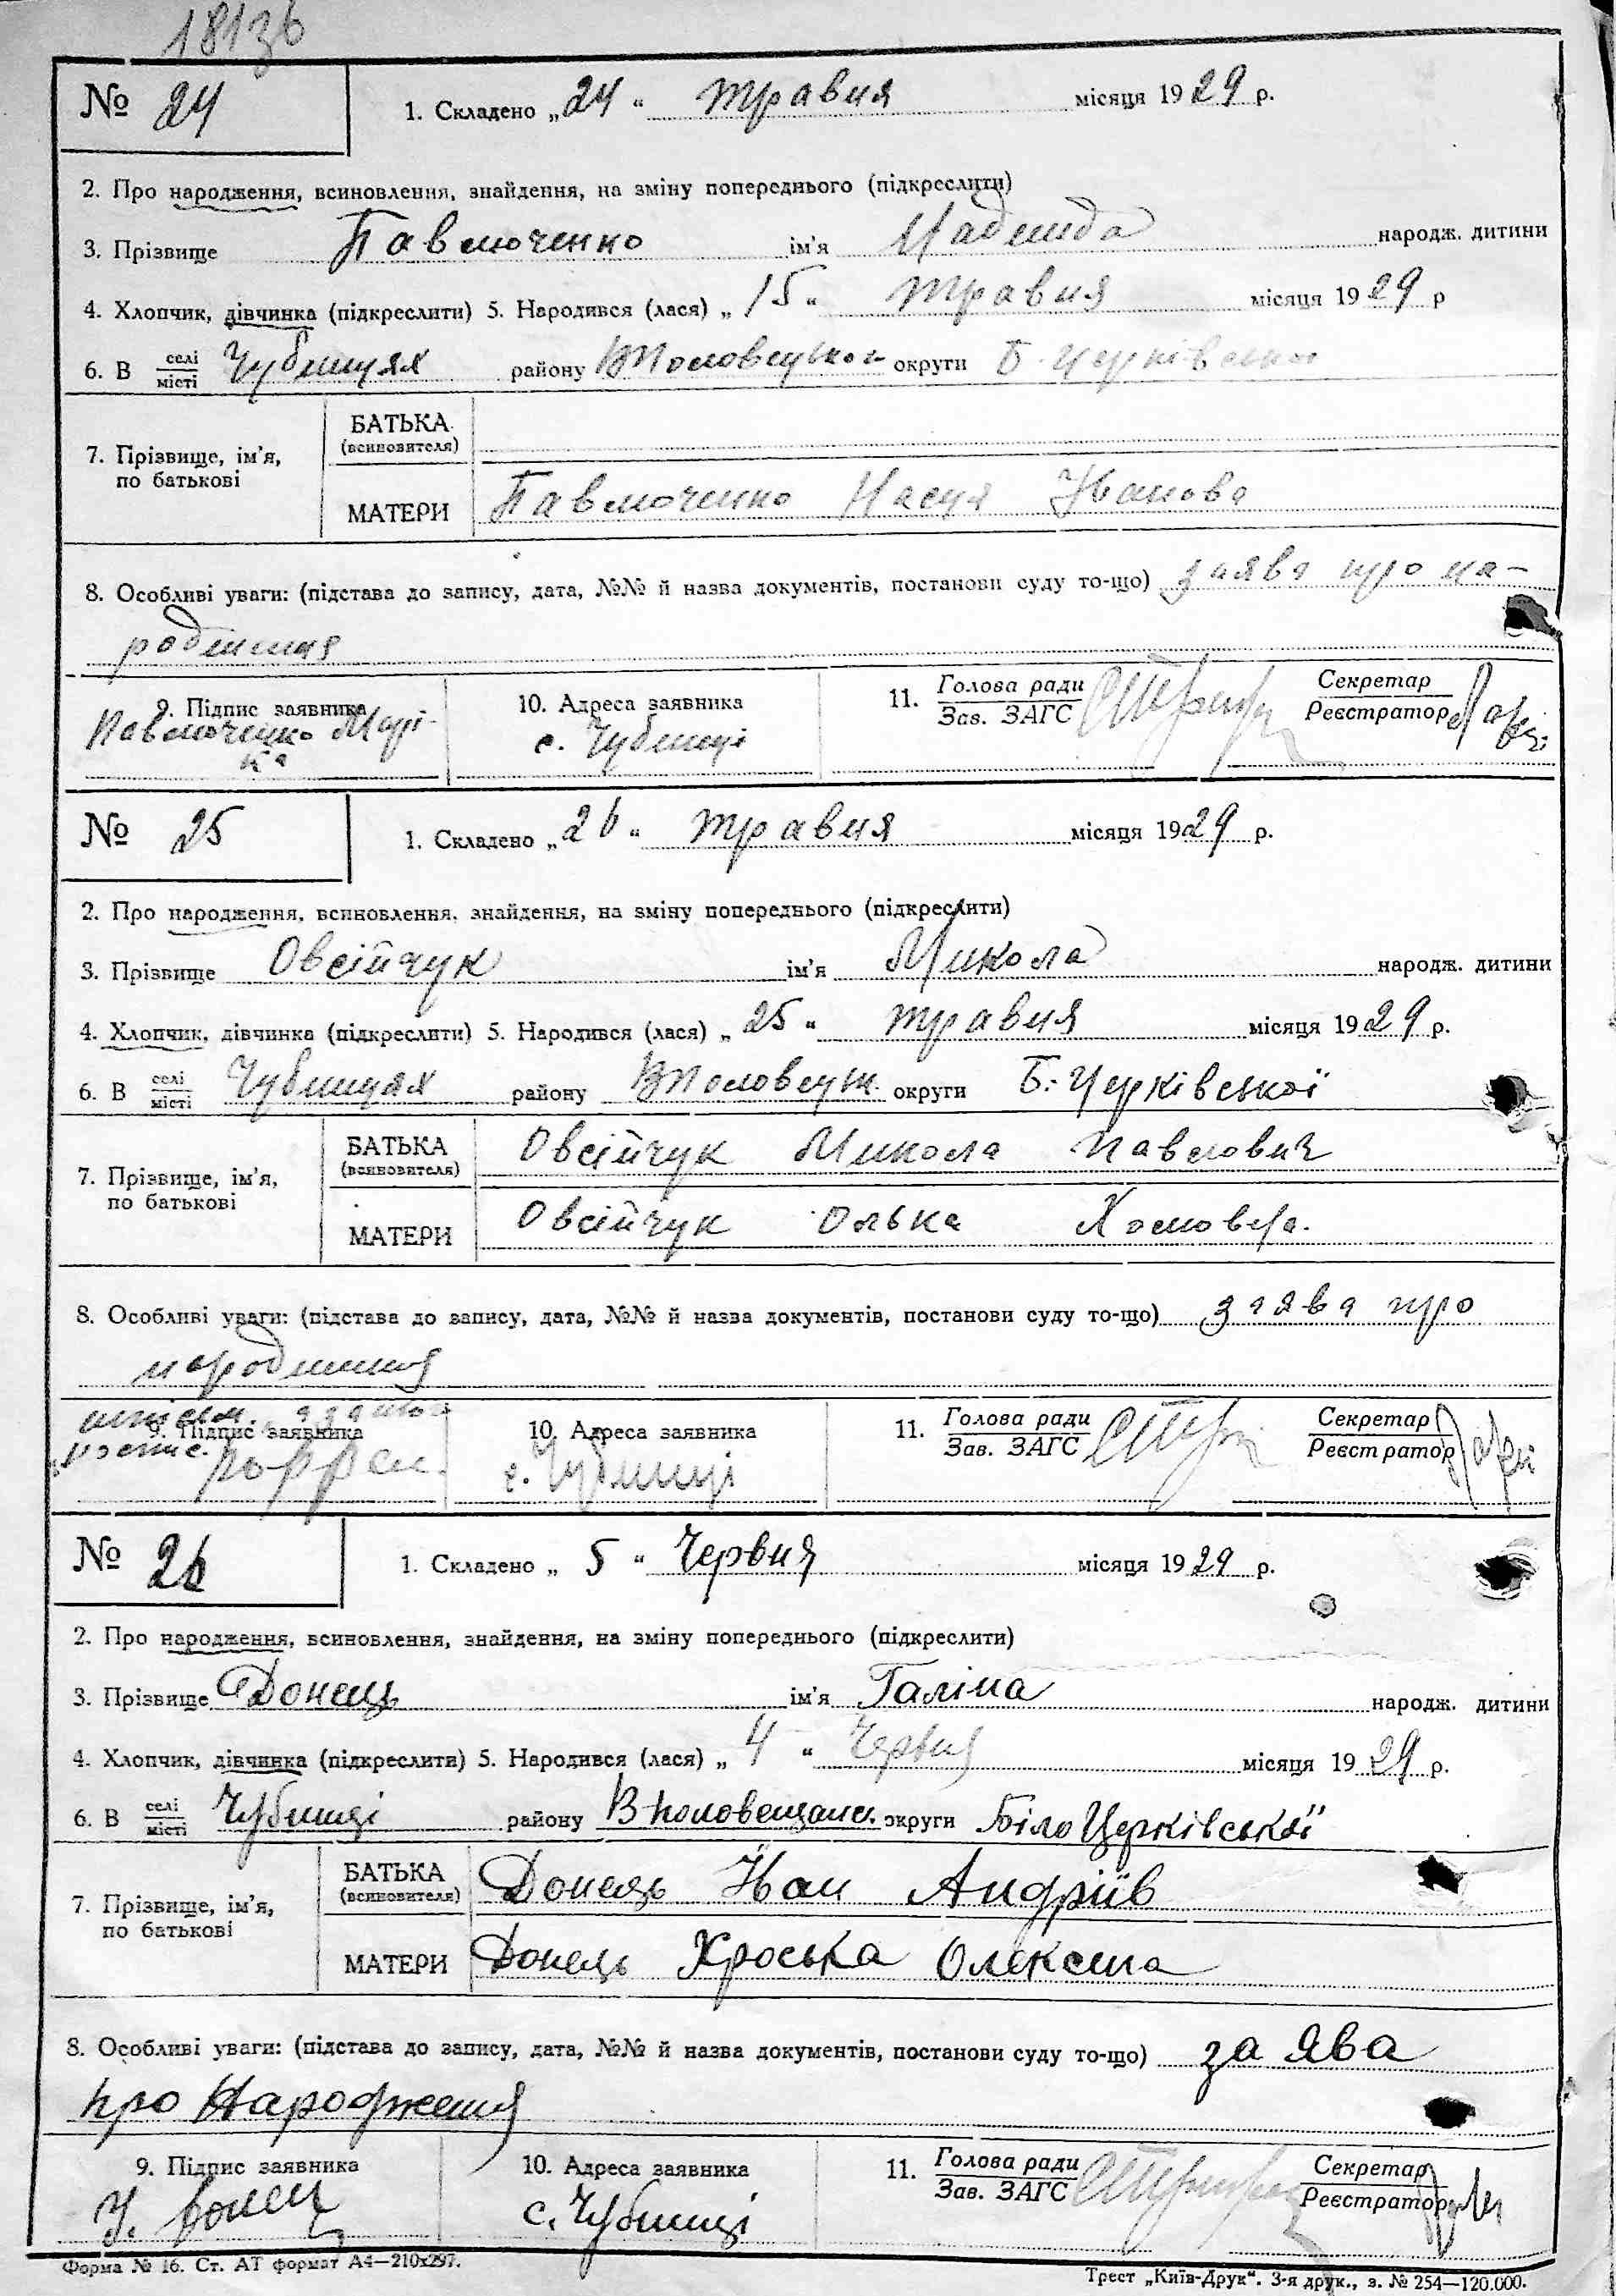 18136
№ 24
1. Складено „24“ травня місяця 1929 р.
2. Про народження, всиновлення, знайдення, на зміну попереднього (підкреслити)
3. Прізвище Павлюченко ім'я Надежда народж. дитини
4. Хлопчик, дівчинка (підкреслити) 5. Народився (лася) „15“ травня місяця 1929 р
6. В селі/місті Чубинцях району округи Б. Церківської
7. Прізвище, ім'я, по батькові
БАТЬКА (всиновителя)
МАТЕРИ Павлюченко Настя Іванова
8. Особливі уваги: (підстава до запису, дата, №№ й назва документів, постанови суду то-що) заява про на-
родження
9. Підпис заявника Павлюченко Марі-
ка
10. Адреса заявника
с. Чубинці
11. Голова ради / Зав. ЗАГС
Секретар / Реєстратор
№ 25
1. Складено „26“ травня місяця 1929 р.
2. Про народження, всиновлення, знайдення, на зміну попереднього (підкреслити)
3. Прізвище Овсійчук ім'я Микола народж. дитини
4. Хлопчик, дівчинка (підкреслити) 5. Народився (лася) „25“ травня місяця 1929 р.
6. В селі/місті Чубинцях району округи Б.-Церківської
7. Прізвище, ім'я, по батькові
БАТЬКА (всиновителя) Овсійчук Микола Павлович
МАТЕРИ Овсійчук Олька
8. Особливі уваги: (підстава до запису, дата, №№ й назва документів, постанови суду то-що) заява про
народження
9. Підпис заявника
10. Адреса заявника
с. Чубинці
11. Голова ради / Зав. ЗАГС
Секретар / Реєстратор
№ 26
1. Складено „5“ Червня місяця 1929 р.
2. Про народження, всиновлення, знайдення, на зміну попереднього (підкреслити)
3. Прізвище Донець ім'я Галіна народж. дитини
4. Хлопчик, дівчинка (підкреслити) 5. Народився (лася) „4“ Червня місяця 1929 р.
6. В селі/місті Чубинці району округи Біло Церківської
7. Прізвище, ім'я, по батькові
БАТЬКА (всиновителя) Донець Іван Андріїв
МАТЕРИ Донець Хроська Олексіїва
8. Особливі уваги: (підстава до запису, дата, №№ й назва документів, постанови суду то-що) за ява
про Народження
9. Підпис заявника
10. Адреса заявника
с. Чубинці
11. Голова ради / Зав. ЗАГС
Секретар / Реєстратор
Форма № 16. Ст. АТ формат А4—210х297.
Трест „Київ-Друк“. 3-я друк., з. № 254—120.000.